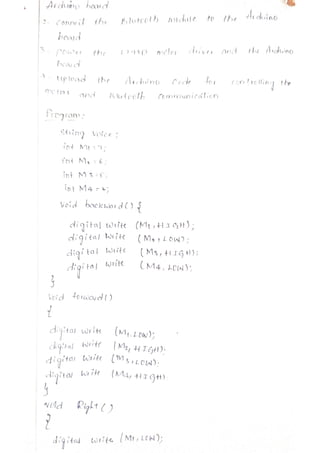 Arduino board
2. connect the Bluetooth module to the Arduino
board
3. power the motor driver and the Arduino
board
4. upload the Arduino Code for controlling the
motors and Bluetooth communication
Program:
String voice;
int M1 = 7;
int M2 = 6;
int M3 = 5;
int M4 = 4;
Void backward() {
digital write (M1, HIGH);
digital write (M2, LOW);
digital write (M3, HIGH);
digital write (M4, LOW);
}
Void forward()
{
digital write (M1, LOW);
digital write (M2, HIGH);
digital write (M3, LOW);
digital write (M4, HIGH)
}
void Right ()
{
digital write (M1, LOW);